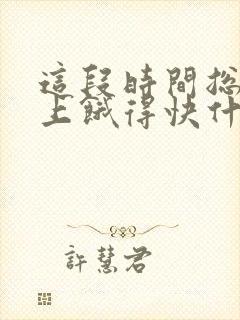 這段時間總
上餓得快什
許慧君